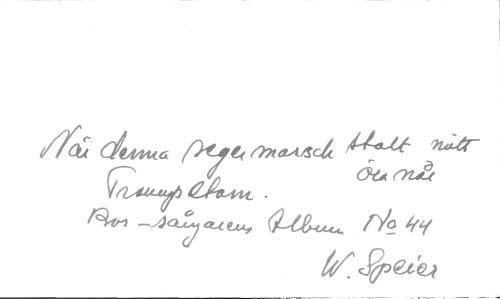 När denna segermarsch skalt nått
öra når
Trumpetarn.
Ros-sångarens Album No 44
W. Speier